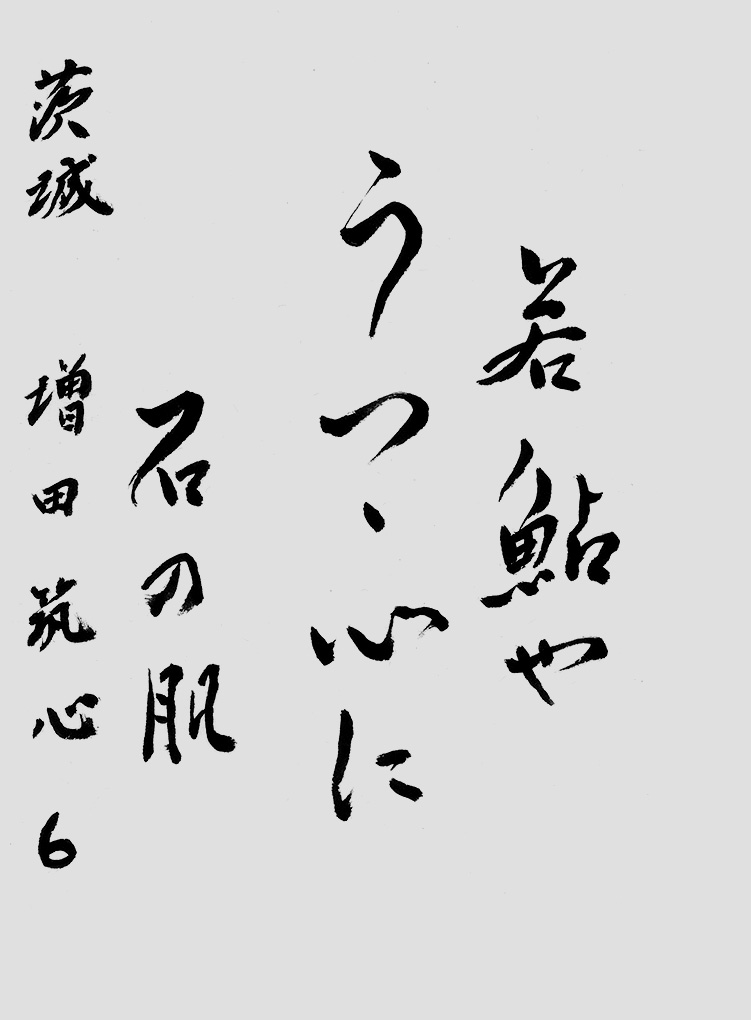 若鮎や
うつゝ心に
石の肌
茨城 増田筑心 6